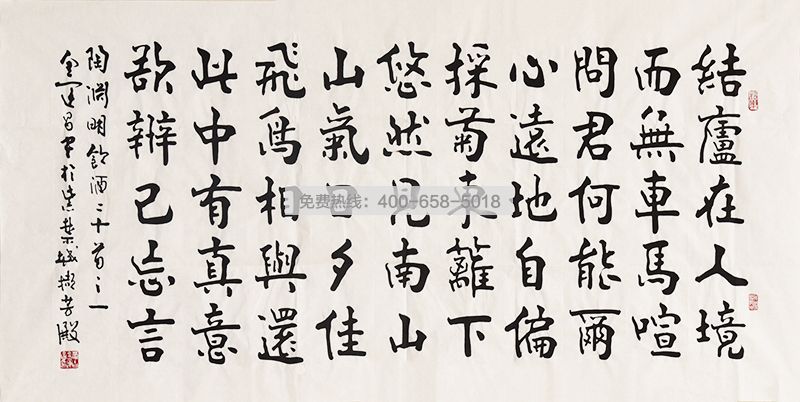 結廬在人境
而無車馬喧
問君何能爾
心遠地自偏
採菊東籬下
悠然見南山
山氣日夕佳
飛鳥相與還
此中有真意
欲辨已忘言
陶淵明飲酒二十首之一
金運昌書於紫禁城擷芳殿
免费热线：400-658-5018